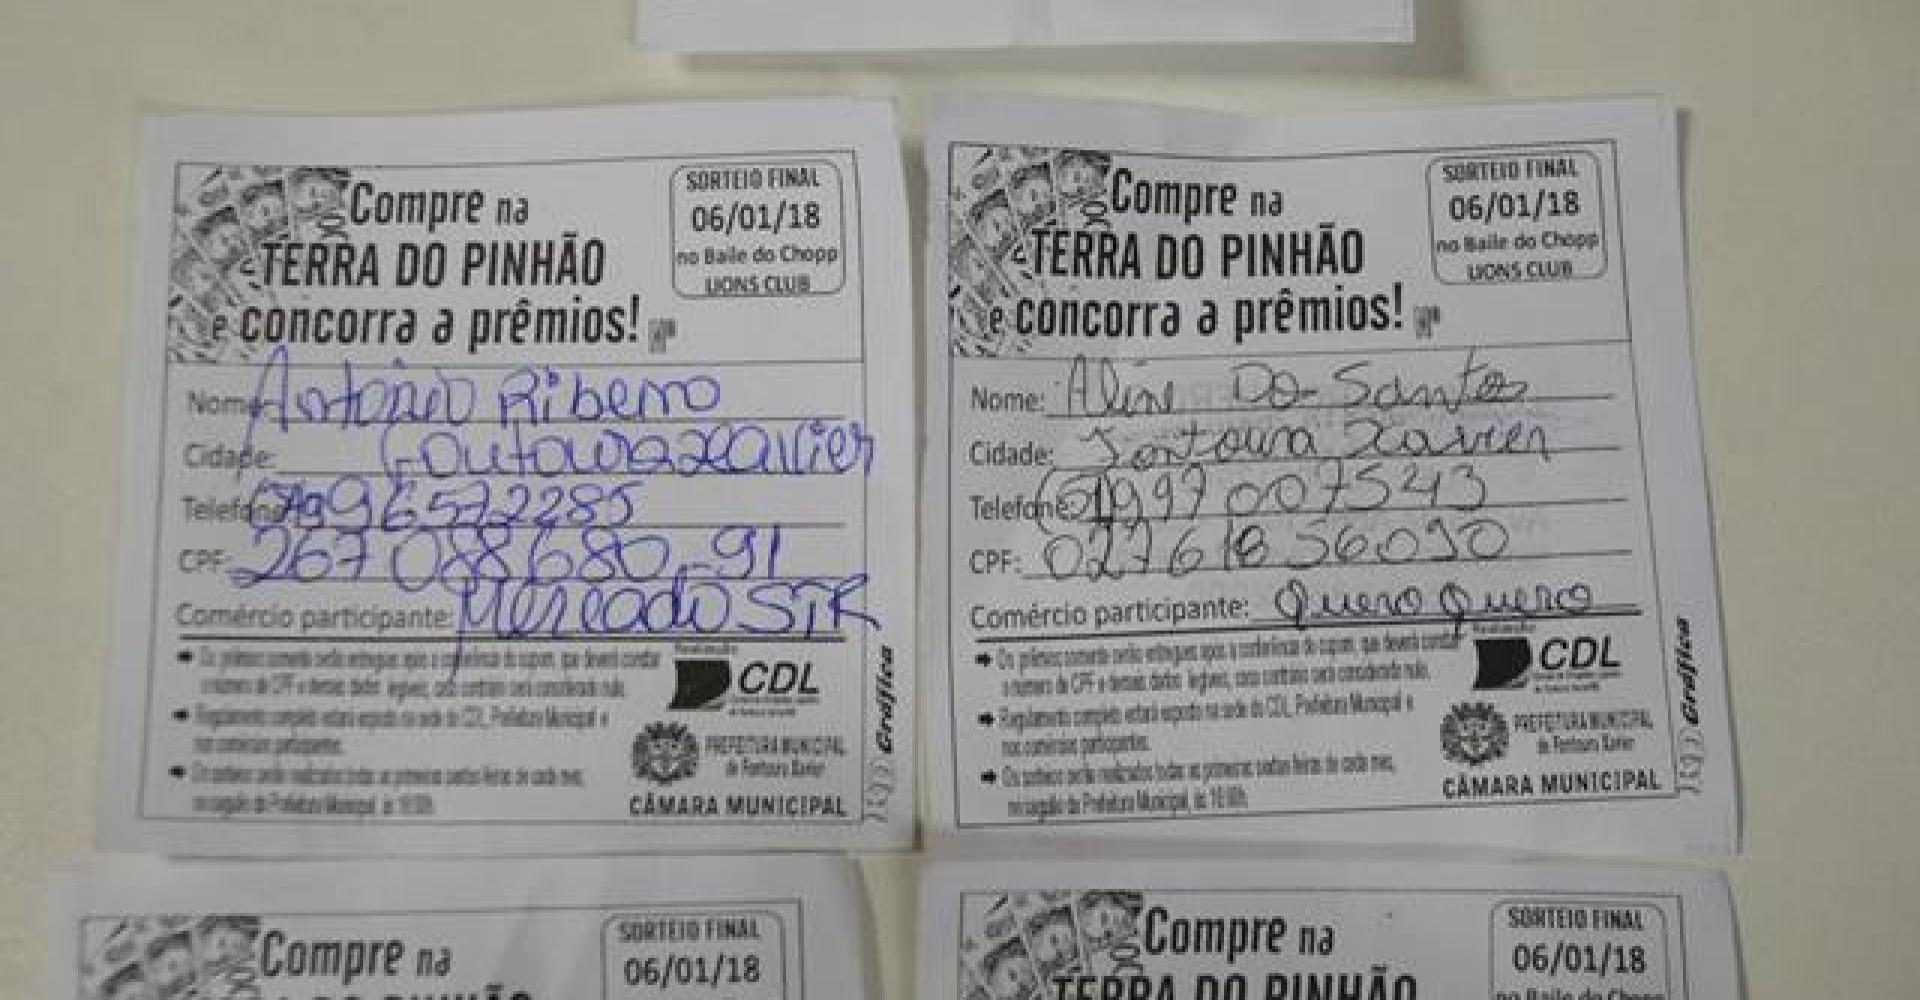 Compre na
TERRA DO PINHÃO
e concorra a prêmios!
SORTEIO FINAL
06/01/18
no Baile do Chopp
LIONS CLUB
Nome: Antônio Ribeiro
Cidade: Fontoura Xavier
Telefone: 996572285
CPF: 267 088 680-91
Comércio participante: Mercado STR
Os prêmios somente serão entregues após a conferência do cupom, que deverá constar
o número do CPF e demais dados legíveis, caso contrário será considerado nulo.
Regulamento completo estará exposto na sede do CDL, Prefeitura Municipal e
nos comércios participantes.
Os sorteios serão realizados todas as primeiras sextas-feiras de cada mês,
no saguão da Prefeitura Municipal, às
Realização
CDL
PREFEITURA MUNICIPAL
de Fontoura Xavier
CÂMARA MUNICIPAL
Gráfica
Compre na
TERRA DO PINHÃO
e concorra a prêmios!
SORTEIO FINAL
06/01/18
no Baile do Chopp
LIONS CLUB
Nome: Aline Do Santos
Cidade: Fontoura Xavier
Telefone: (51) 997007543
CPF: 027618560
Comércio participante: Quero Quero
Os prêmios somente serão entregues após a conferência do cupom, que deverá constar
o número do CPF e demais dados legíveis, caso contrário será considerado nulo.
Regulamento completo estará exposto na sede do CDL, Prefeitura Municipal e
nos comércios participantes.
Os sorteios serão realizados todas as primeiras sextas-feiras de cada mês,
no saguão da Prefeitura Municipal, às
Realização
CDL
PREFEITURA MUNICIPAL
de Fontoura Xavier
CÂMARA MUNICIPAL
Gráfica
Compre na
SORTEIO FINAL
06/01/18
Compre na
TERRA DO PINHÃO
SORTEIO FINAL
06/01/18
no Baile do Chopp